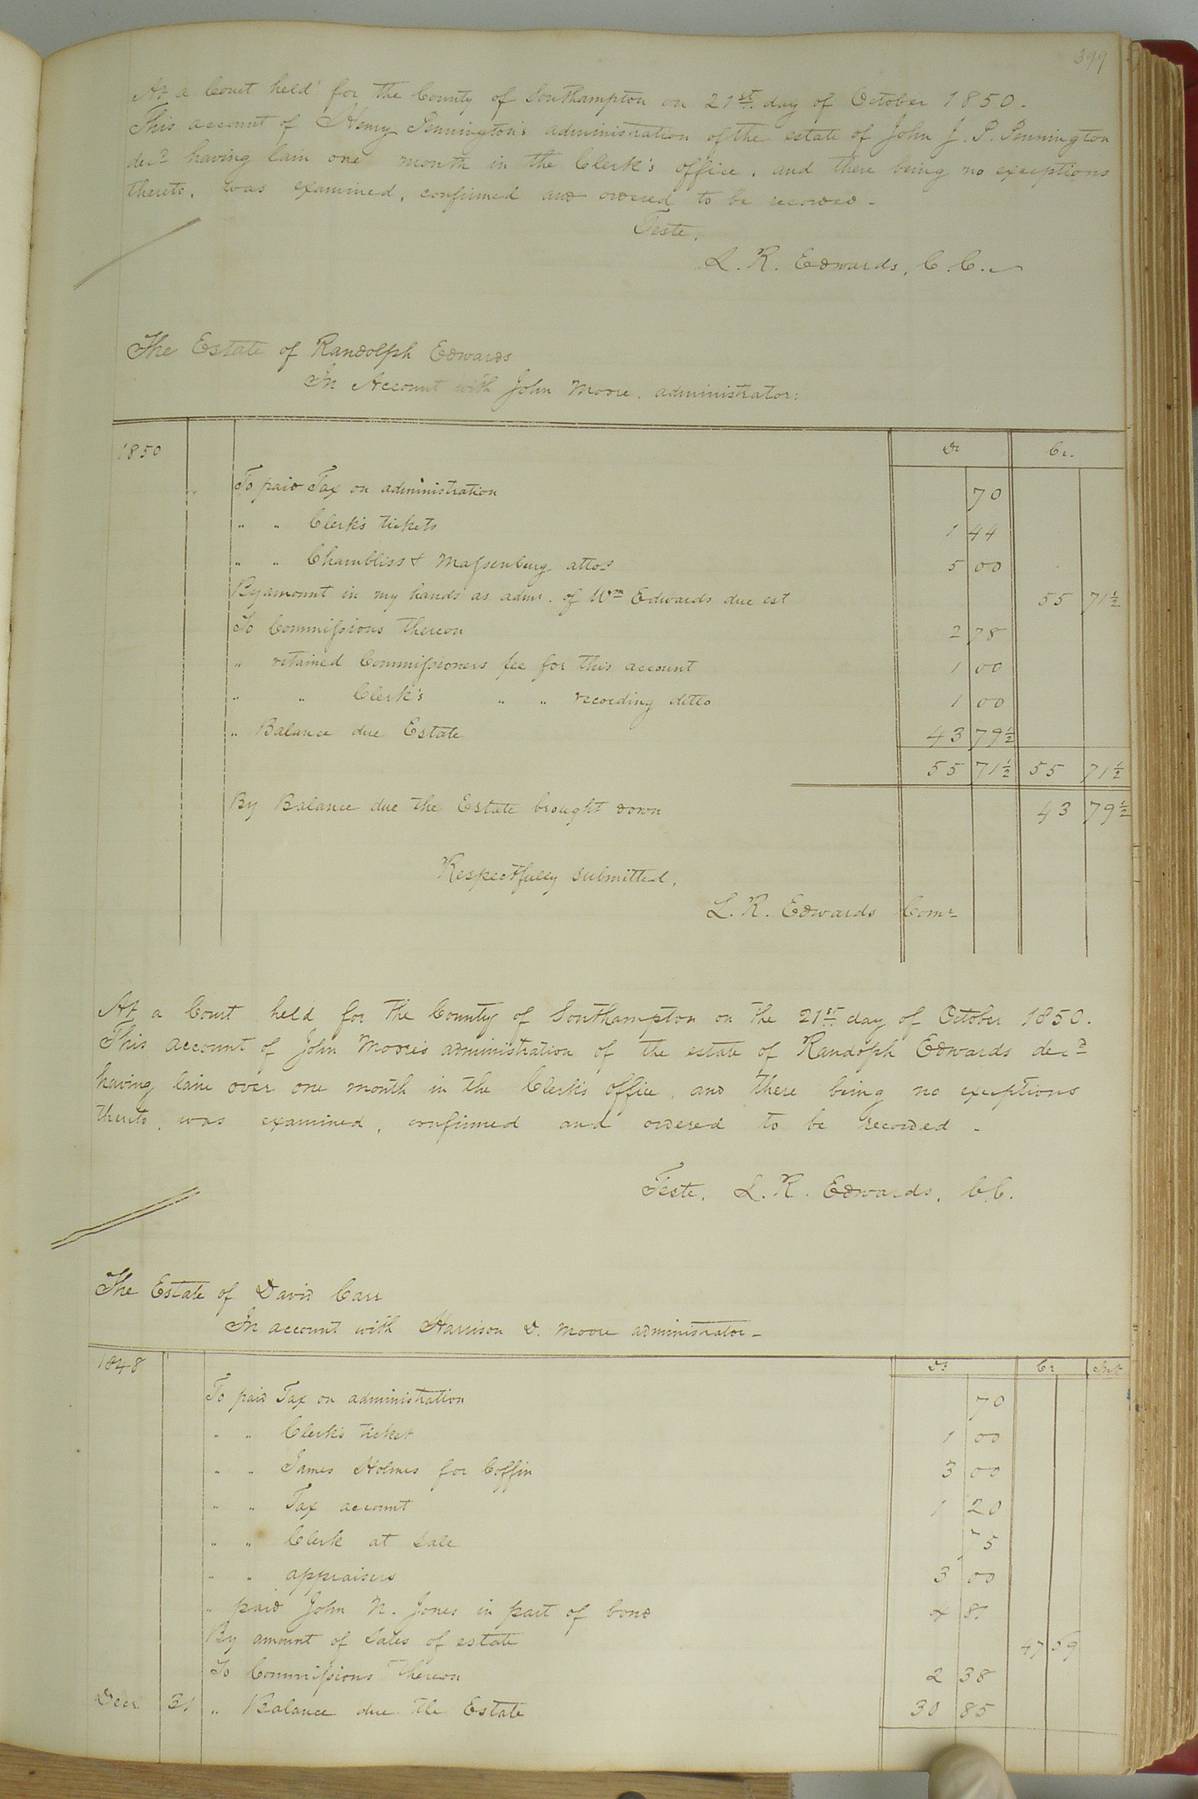 399
At a Court held for the County of Southampton on 21st day of October 1850.
This account of Henry Pennington's administration of the estate of John J. P. Pennington
decd having lain one month in the Clerk's office, and there being no exceptions
thereto, was examined, confirmed and ordered to be recorded.
Teste,
L. R. Edwards, C. C.
The Estate of Randolph Edwards
In Account with John Moore, administrator:
1850 Dr Cr.
To paid Tax on administration 70
" " Clerk's tickets 1 44
" " Chambliss & Massenburg attos 5 00
By amount in my hands as admr. of Wm Edwards due est 55 71½
To Commissions thereon 2 78
" retained Commissioners fee for this account 1 00
" " Clerk's " " recording ditto 1 00
" Balance due Estate 43 79½
55 71½ 55 71½
By Balance due the Estate brought down 43 79½
Respectfully submitted,
L. R. Edwards Comr
At a Court held for the County of Southampton on the 21st day of October 1850.
This account of John Moore's administration of the estate of Randolph Edwards decd
having lain over one month in the Clerk's office, and there being no exceptions
thereto, was examined, confirmed and ordered to be recorded.
Teste, L. R. Edwards, C.C.
The Estate of David Carr
In account with Harrison D. Moore administrator
1848 Dr Cr Int
To paid Tax on administration 70
" " Clerk's ticket 1 00
" " James Holmes for Coffin 3 00
" " Tax account 1 20
" " Clerk at Sale 75
" " appraisers 3 00
" paid John N. Jones in part of bond
By amount of Sales of estate 47 59
To Commissions thereon 2 38
Decr 31 " Balance due the Estate 30 85